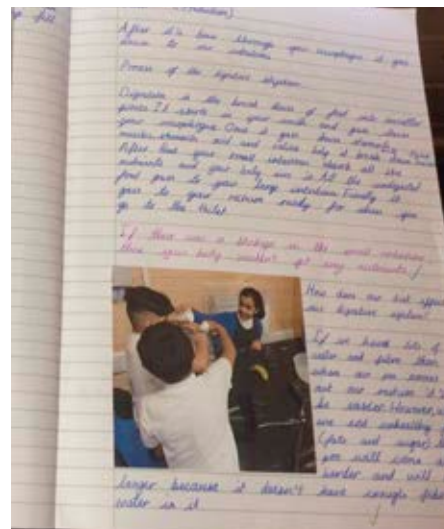 After it's been through your oesophagus it goes
down to our intestines
Process of the digestive system
Digestion is the break down of food into smaller
pieces. It starts in your mouth and goes down
your oesophagus. Once it goes down
muscles stomach acid and help it break down
After that your small intestine absorb all the
nutrients and your body use it. All the undigested
food goes to your large intestine. Finally it
goes to your rectum ready for when you
go to the toilet
If there was a blockage in the small intestine
then your body wouldn't get any nutrients
How does our diet
our digestive system?
If we have lots of
water and fibre then
when our poo comes
out our rectum it'll
be softer. However,
we eat unhealthy
(fats and sugar)
poo will come
harder and will
longer because it doesn't have enough
water in it